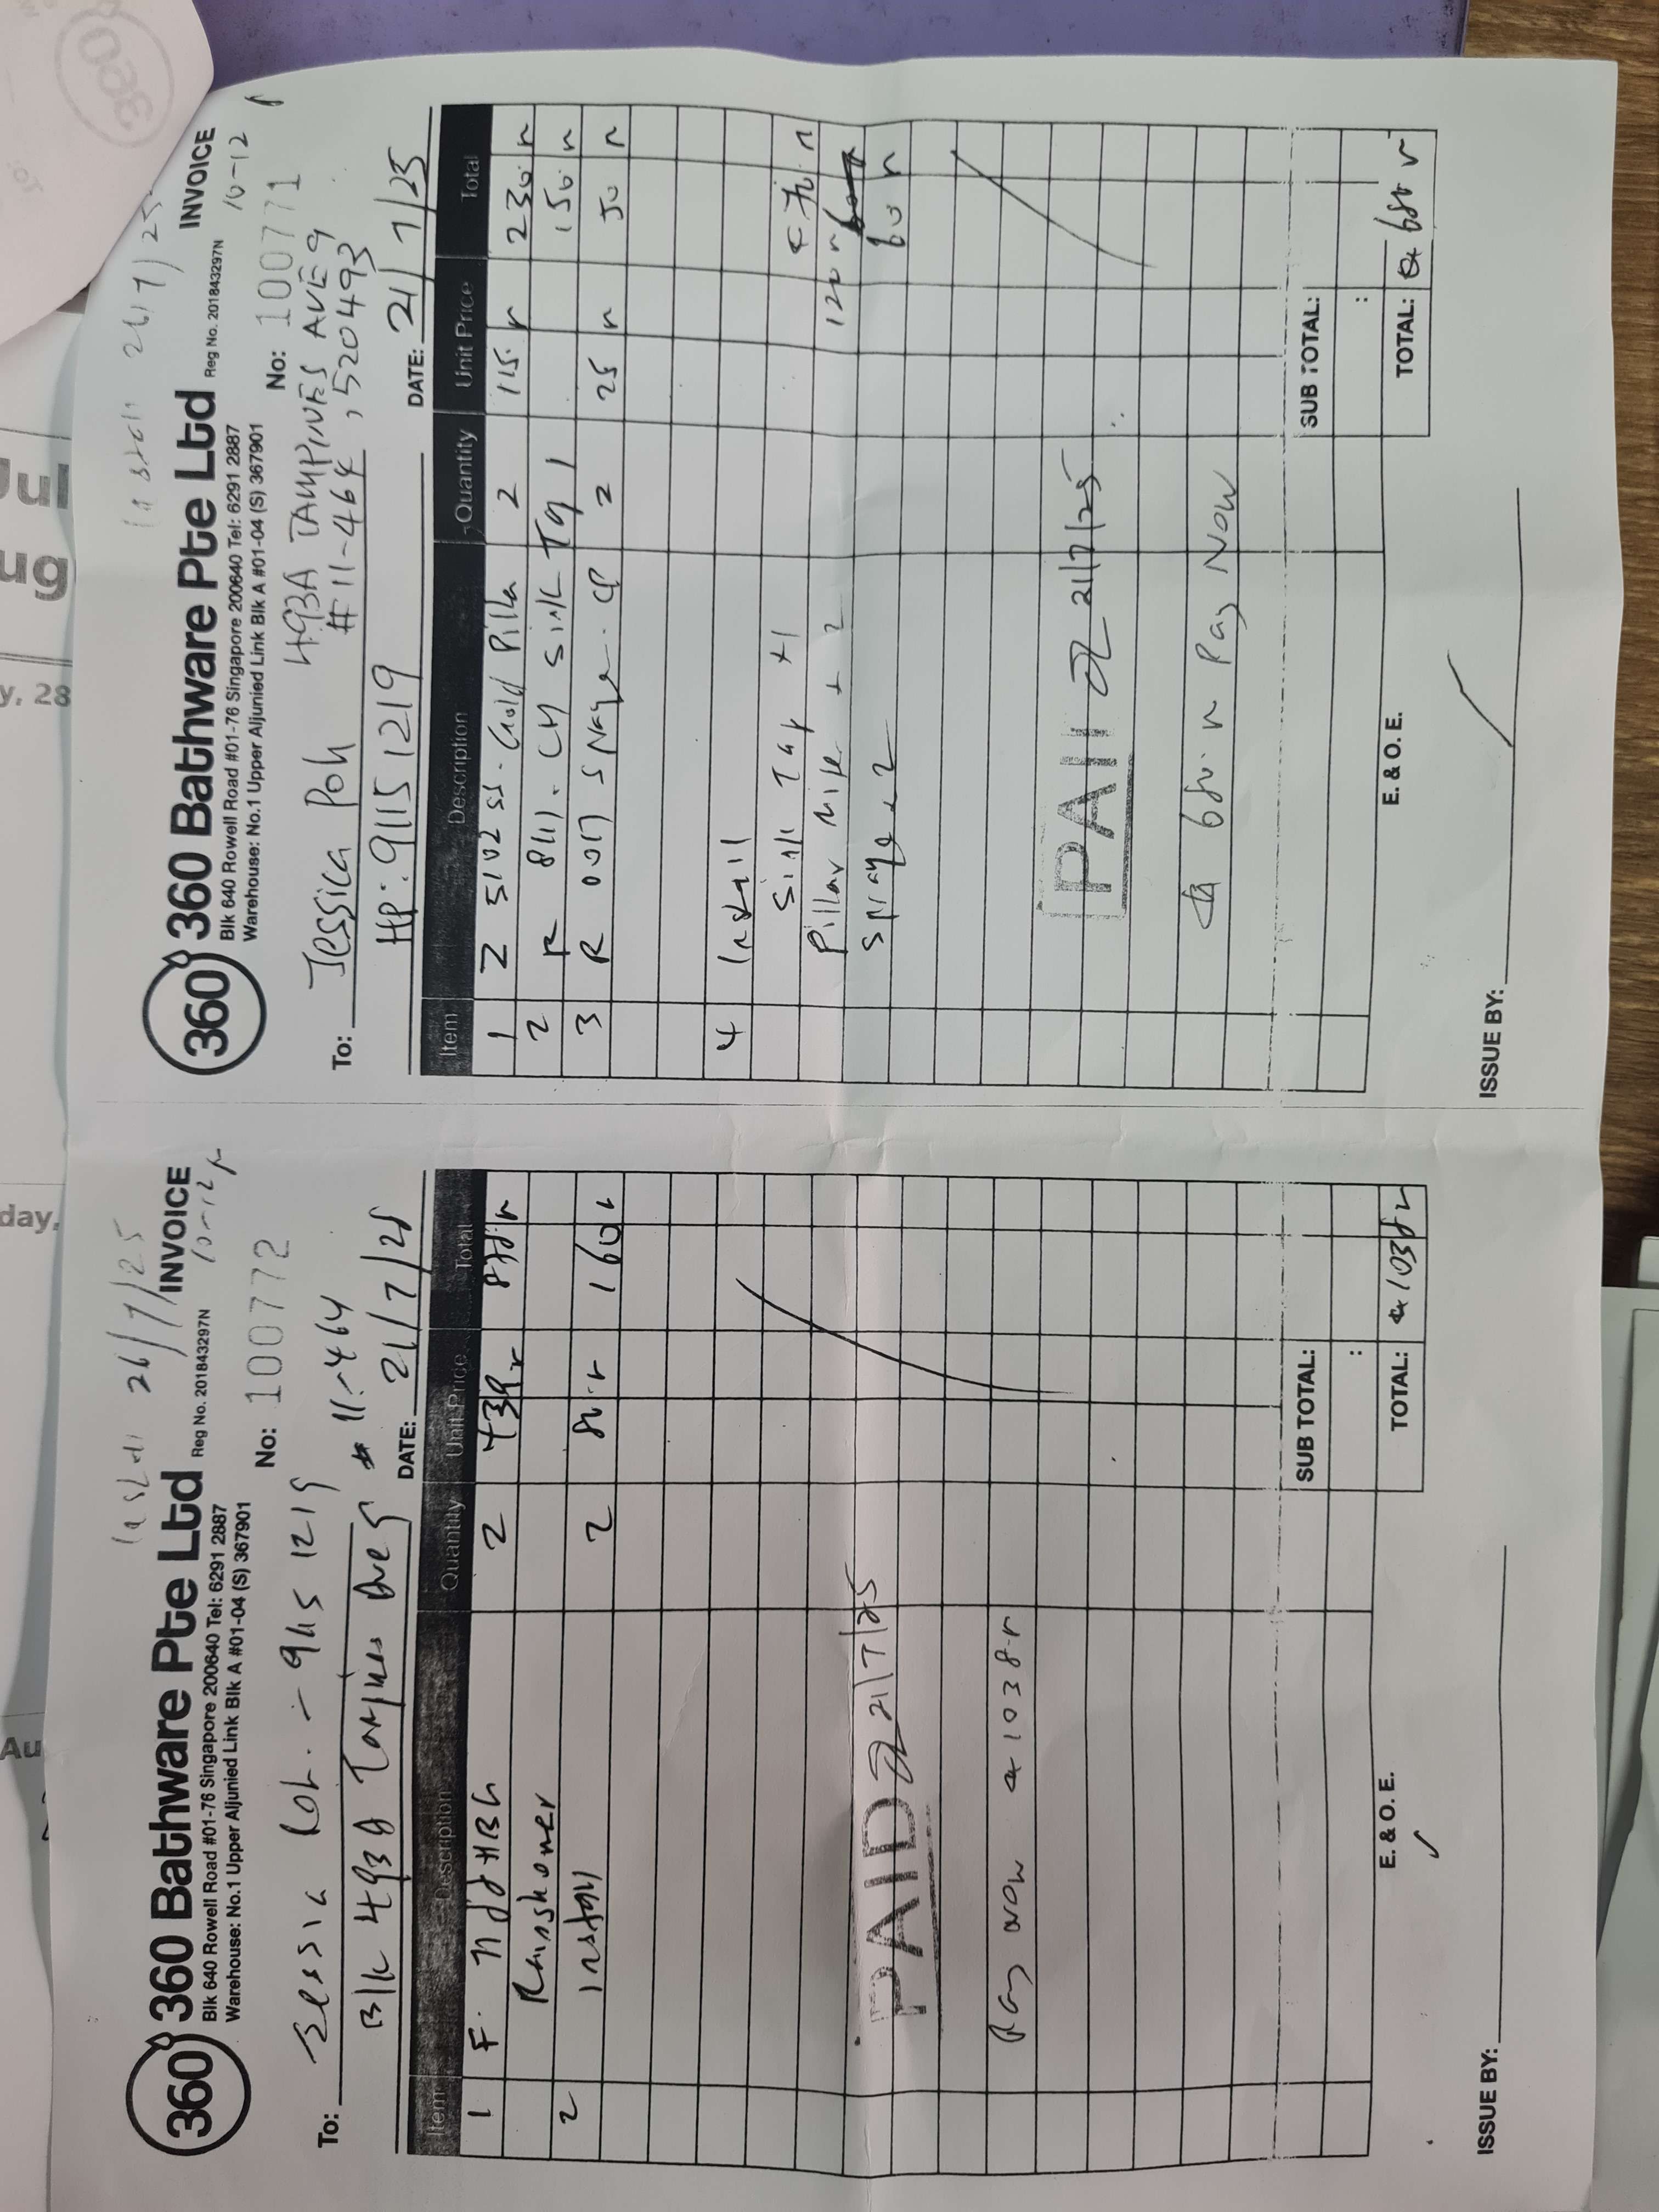 Install 26/7/25
360
360 Bathware Pte Ltd
INVOICE
Reg No. 201843297N
10-12
Blk 640 Rowell Road #01-76 Singapore 200640 Tel: 6291 2887
Warehouse: No.1 Upper Aljunied Link Blk A #01-04 (S) 367901
No: 100772
To: Jessica Poh :- 9115 1219
Blk 493A Tampines Ave 9 # 11-464
DATE: 21/7/25
Item Description Quantity Unit Price Total
1 F. 2 439 878
Rainshower
2 install 2 80 160
PAID 21/7/25
Pay now 1038
SUB TOTAL:
:
E. & O. E.
TOTAL: 1038
ISSUE BY:
Install 26/7/25
360
360 Bathware Pte Ltd
INVOICE
Reg No. 201843297N
10-12
Blk 640 Rowell Road #01-76 Singapore 200640 Tel: 6291 2887
Warehouse: No.1 Upper Aljunied Link Blk A #01-04 (S) 367901
No: 100771
To: Jessica Poh 493A TAMPINES AVE 9
#11-464, 520493
HP: 9115 1219
DATE: 21/7/25
Item Description Quantity Unit Price Total
1 Z 5102 SS. Gold Pilla 2 115 230
2 R 8111. CH Sink Tap 1 150
3 R 0017 Spraye. CP 2 25 50
4 Install
Sink Tap x 1 70
Pillar Mixe x 2 120
Spraye x 2 60
PAID 21/7/25
680 Pay Now
SUB TOTAL:
:
E. & O. E.
TOTAL: 680
ISSUE BY:
Jul
ug
y, 28
day,
Au
380